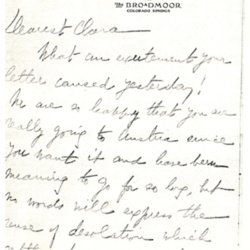 The BROADMOOR
COLORADO SPRINGS
Dearest Clara
What an excitement your
letter caused yesterday!
We are so happy that you are
really going to Austria since
you want it and have been
meaning to go for so long, but
no words will express the
sense of desolation which